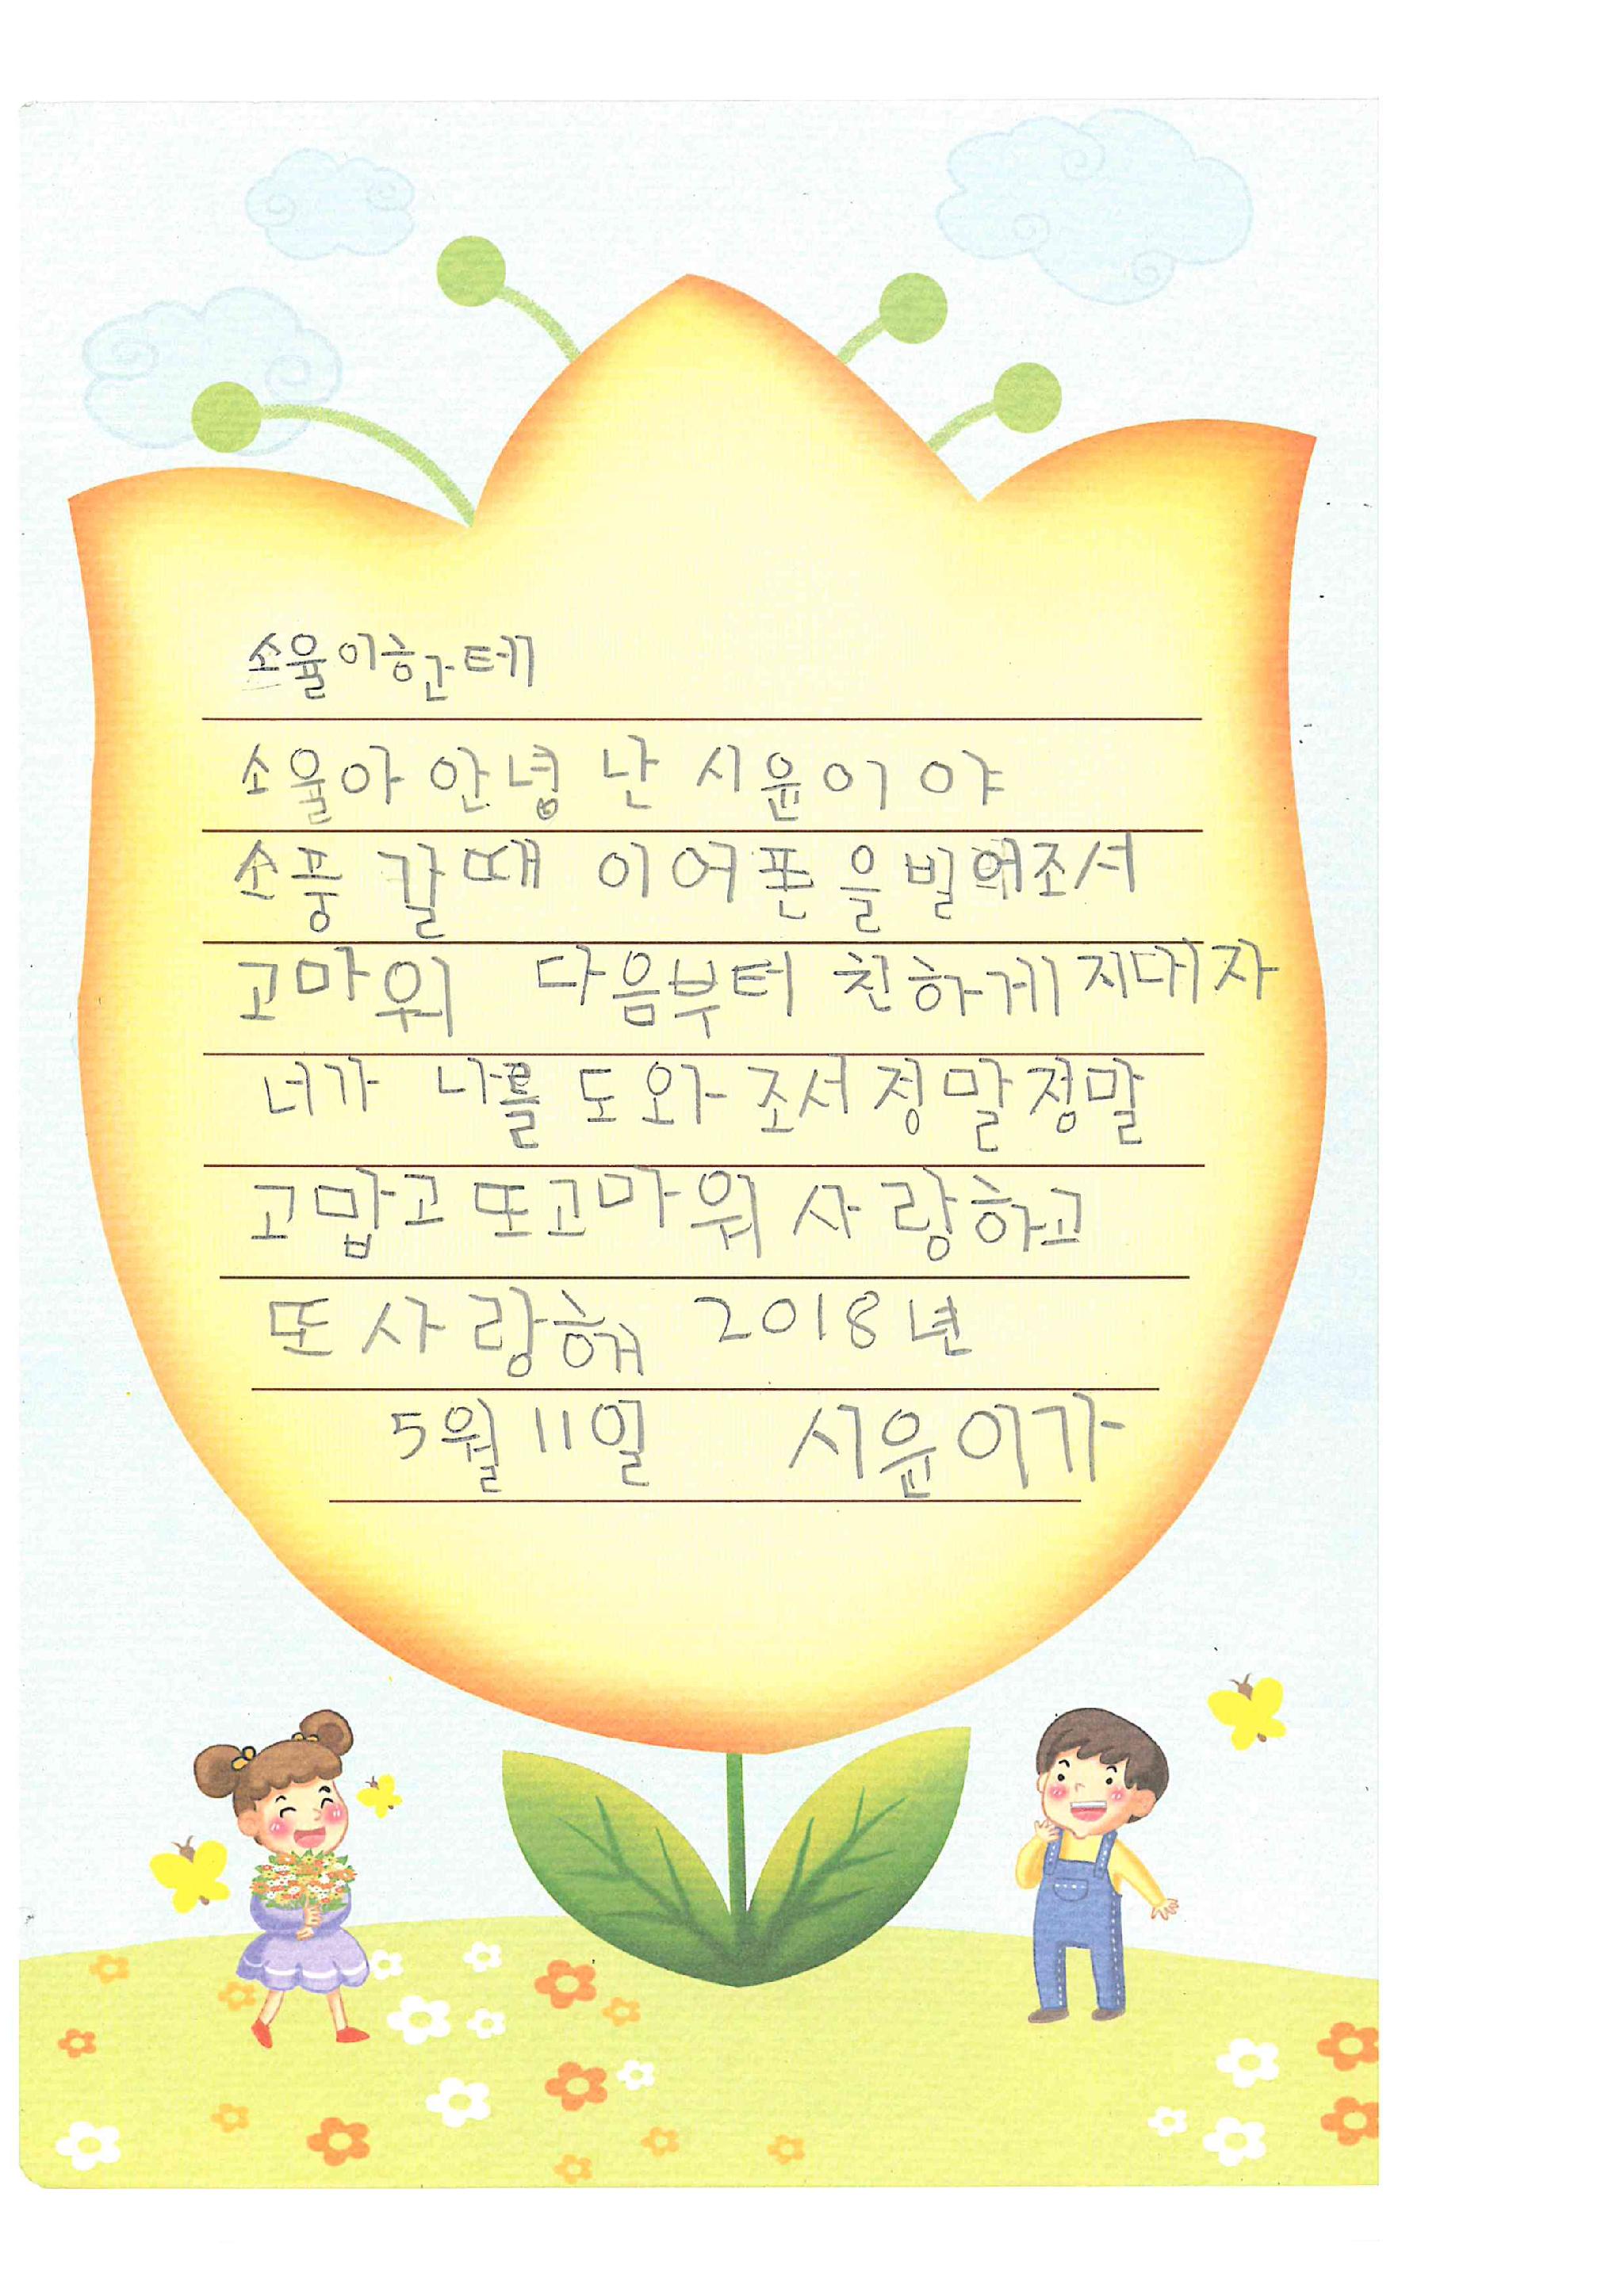 소율이한테
소율아 안녕 난 시윤이야
소풍 갈때 이어폰을 빌려조서
고마워 다음부터 친하게 지내자
너가 나를 도와 조서 정말 정말
고맙고 또 고마워 사랑하고
또 사랑해 2018년
5월 11일 시윤이가